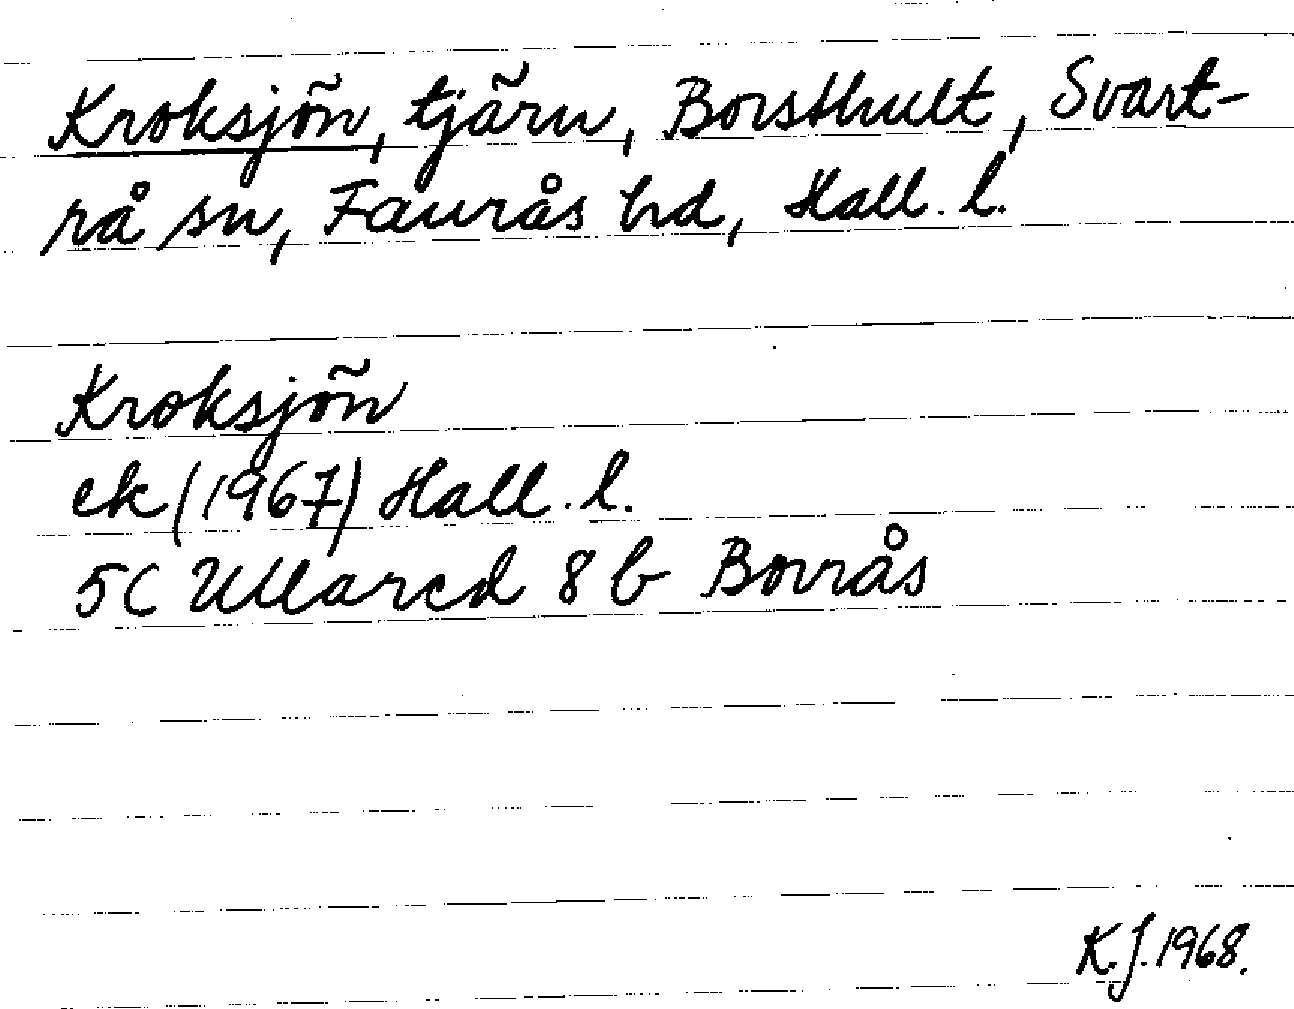 Kroksjön, tjärn, Borsthult, Svart-
rå sn, Faurås hd, Hall. l.
Kroksjön
ek (1967) Hall. l.
5C Ullared 8 b Borrås
K.J. 1968.